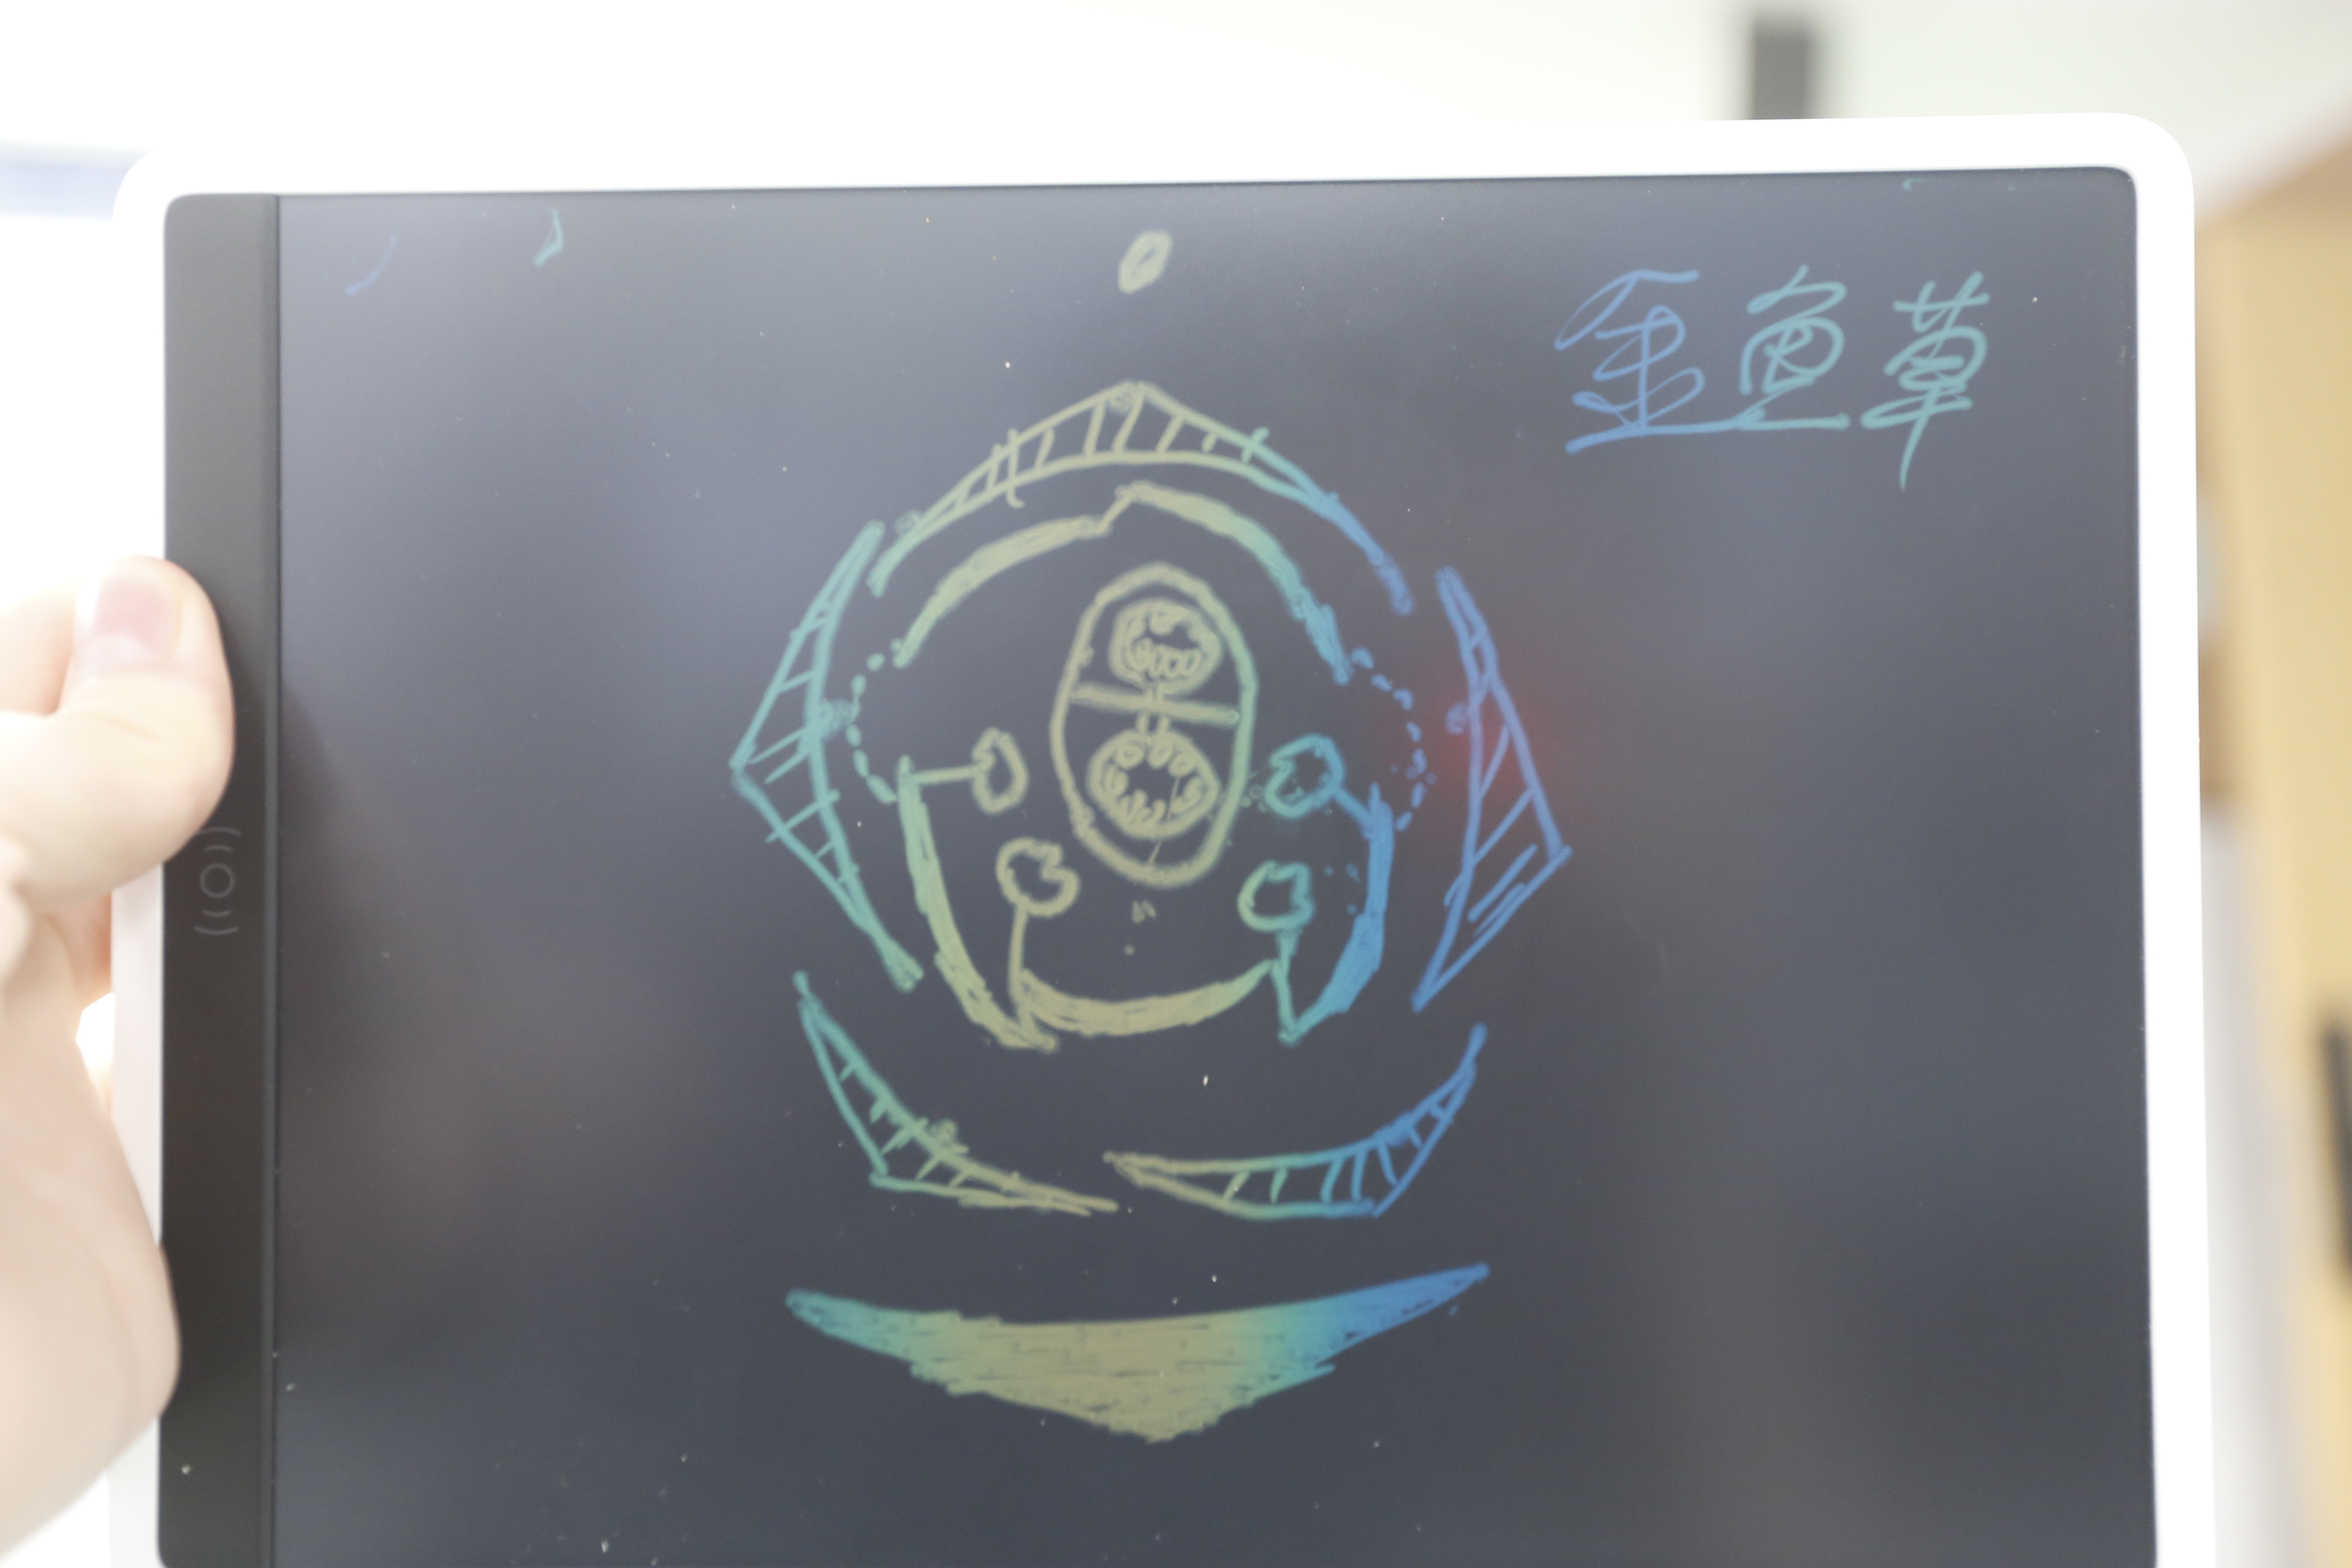 金鱼草